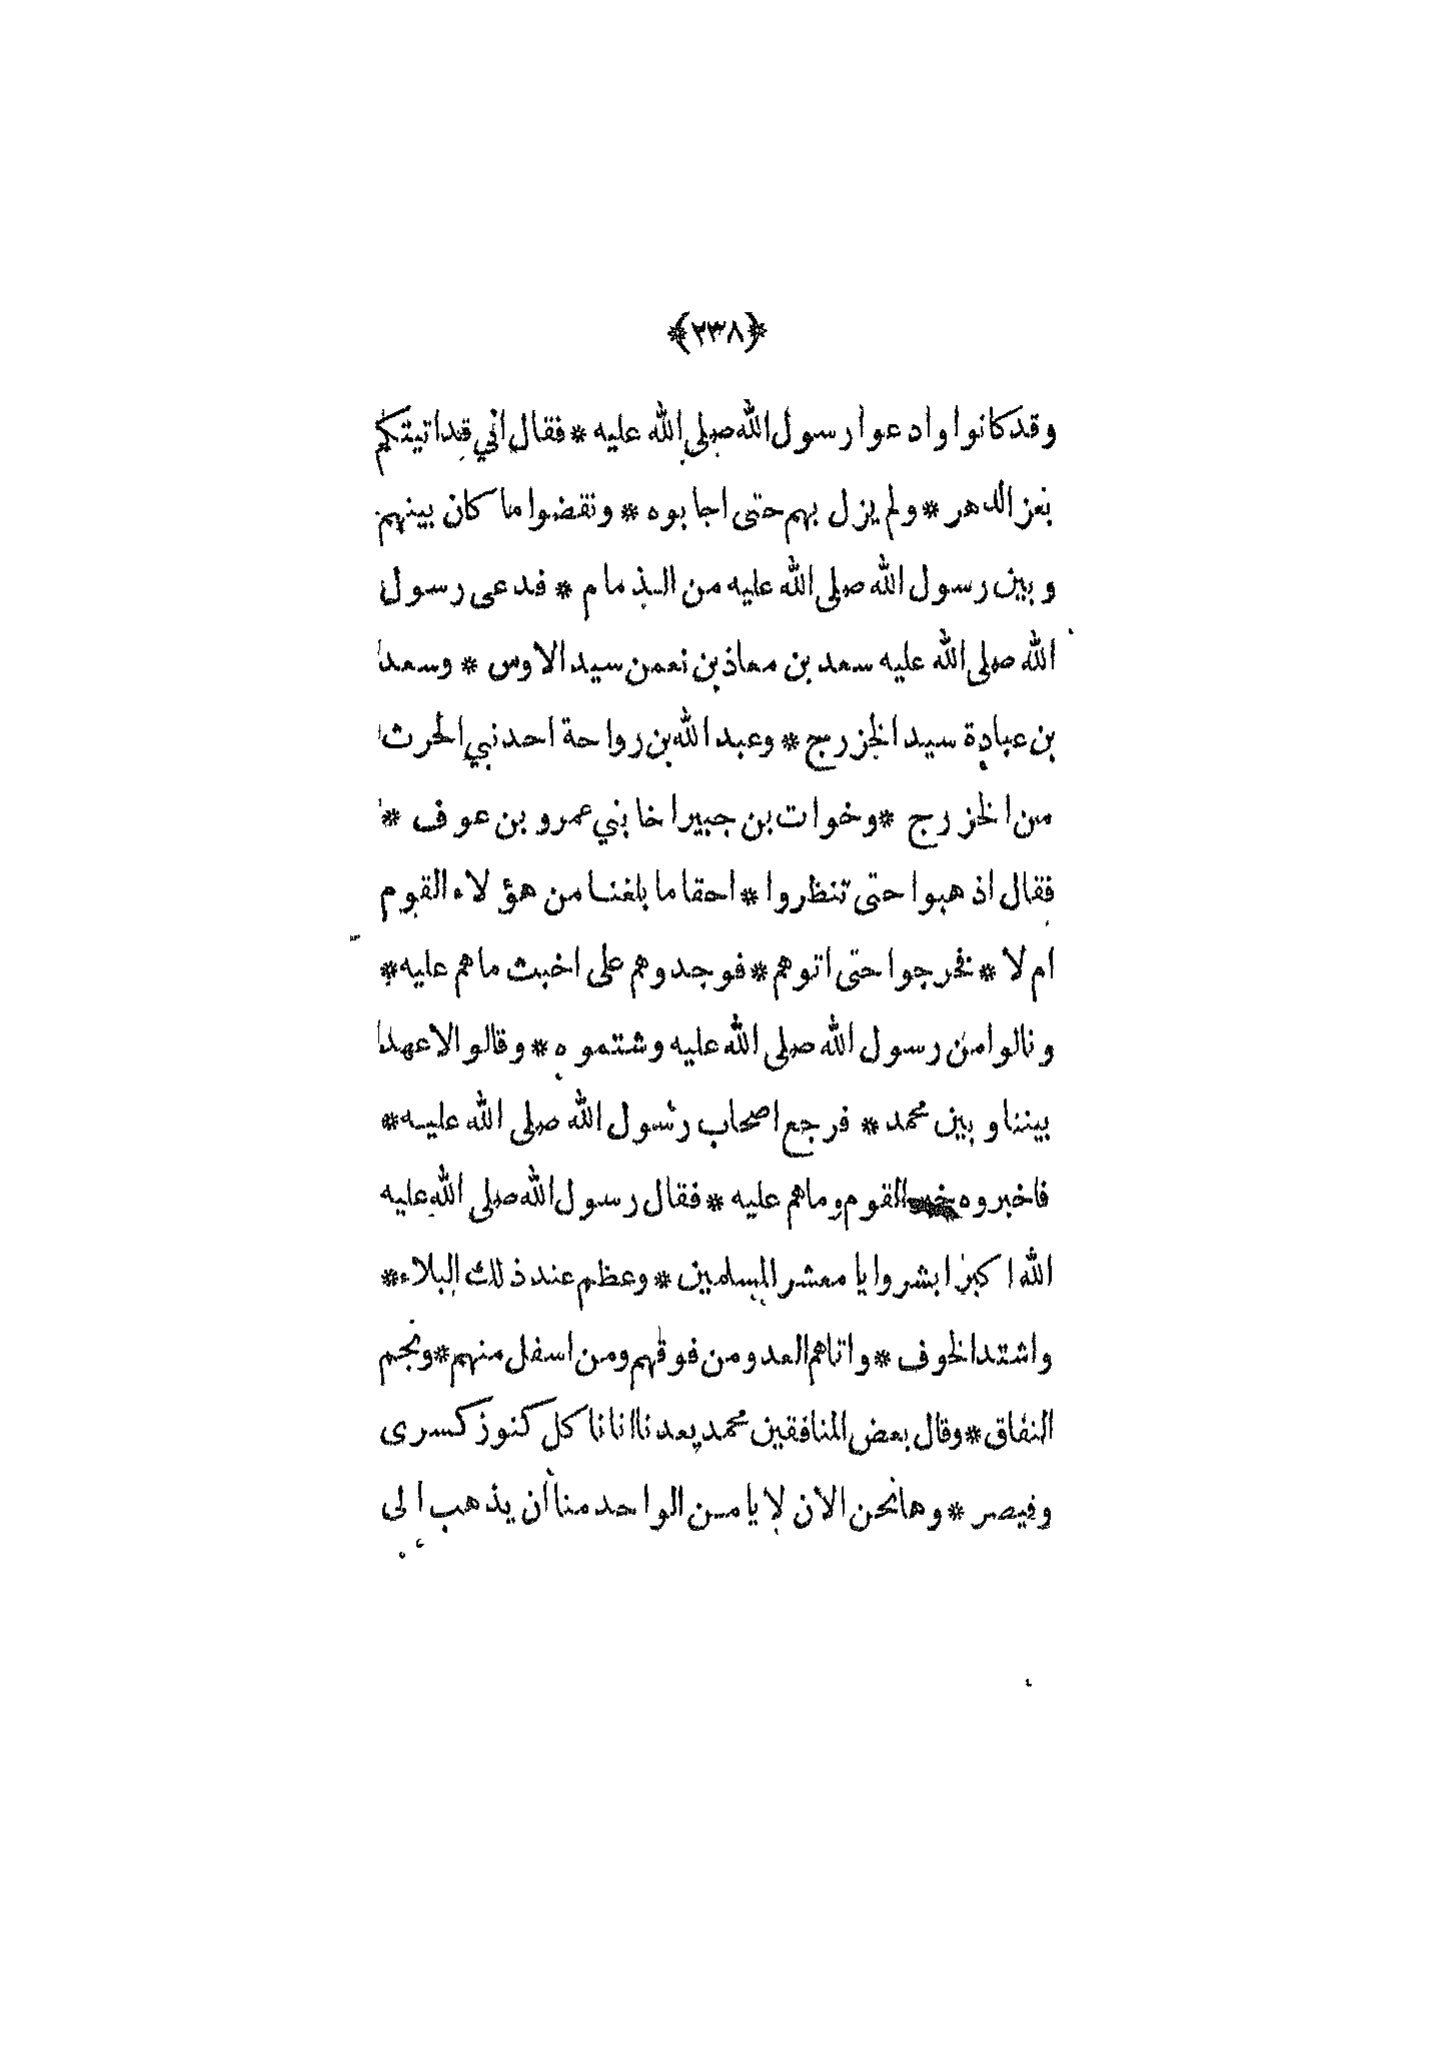 ﴿٢٣٨﴾
وقد كانوا وادعوا رسول الله صلى الله عليه * فقال اني قد اتيتكم
بعز الدهر * ولم يزل بهم حتى اجابوه * ونقضوا ما كان بينهم
وبين رسول الله صلى الله عليه من الذمام * فدعى رسول
الله صلى الله عليه سعد بن معاذ بن نعمن سيد الاوس * وسعد
بن عبادة سيد الخزرج * وعبد الله بن رواحة احد نبي الحرث
من الخزرج * وخوات بن جبير اخا بني عمرو بن عوف *
فقال اذهبوا حتى تنظروا * احقا ما بلغنا من هؤلاء القوم
ام لا * فخرجوا حتى اتوهم * فوجدوهم على اخبث ما هم عليه *
ونالوا من رسول الله صلى الله عليه وشتموه * وقالوا لا عهد
بيننا وبين محمد * فرجع اصحاب رسول الله صلى الله عليه *
فاخبروه القوم وما هم عليه * فقال رسول الله صلى الله عليه
الله اكبر ابشروا يا معشر المسلمين * وعظم عند ذلك البلاء *
واشتد الخوف * واتاهم العدو من فوقهم ومن اسفل منهم * ونجم
النفاق * وقال بعض المنافقين محمد يعدنا انا ناكل كنوز كسرى
وفيصر * وها نحن الان لا يامن الواحد منا أن يذهب الى